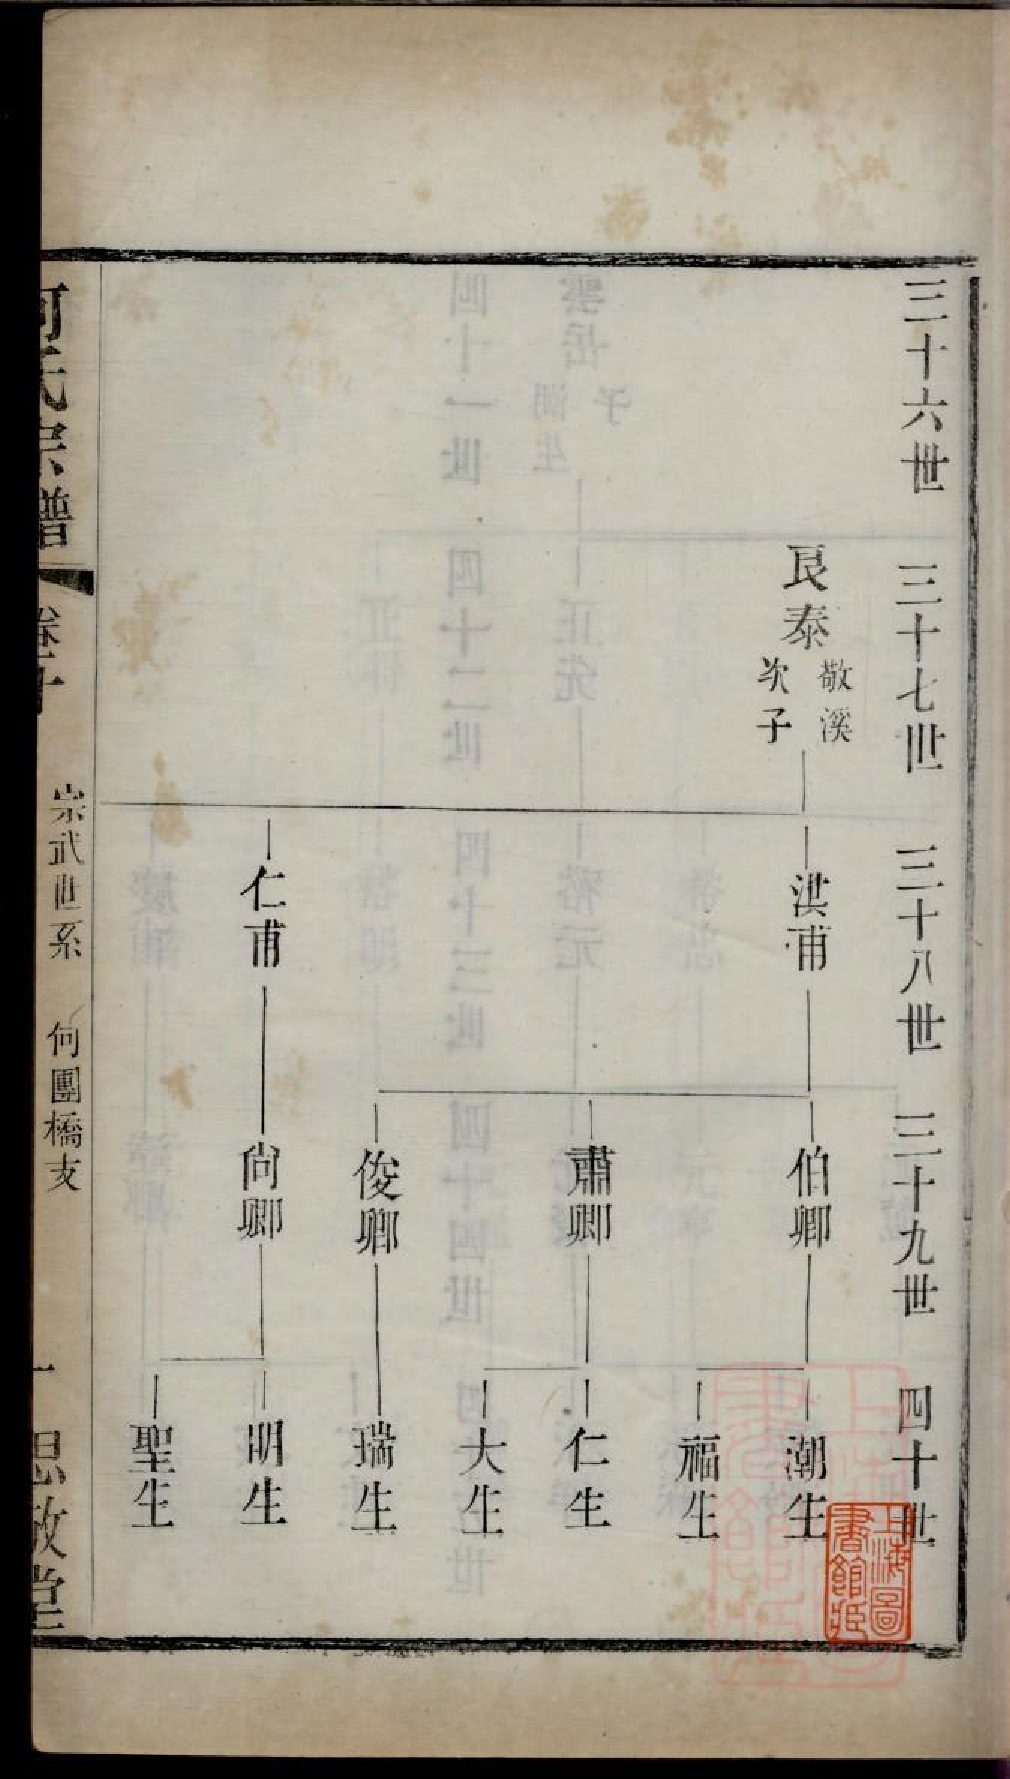 三十六世
三十七世
三十八世
三十九世
四十世
良泰
敬溪
次子
洪甫
仁甫
伯卿
肅卿
俊卿
尙卿
潮生
福生
仁生
大生
瑞生
明生
聖生
何氏宗譜
卷十
宗武世系 何團橋支
一
思敬堂
上海圖
書館藏